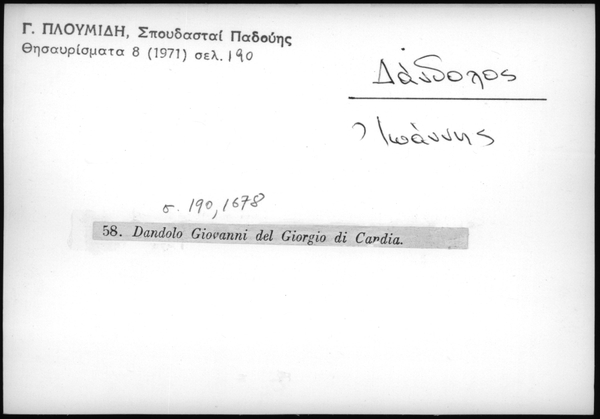 Γ. ΠΛΟΥΜΙΔΗ, Σπουδασταί Παδούης
Θησαυρίσματα 8 (1971) σελ. 190
Δάνδολος
Ἰωάννης
σ. 190, 1678
58. Dandolo Giovanni del Giorgio di Candia.